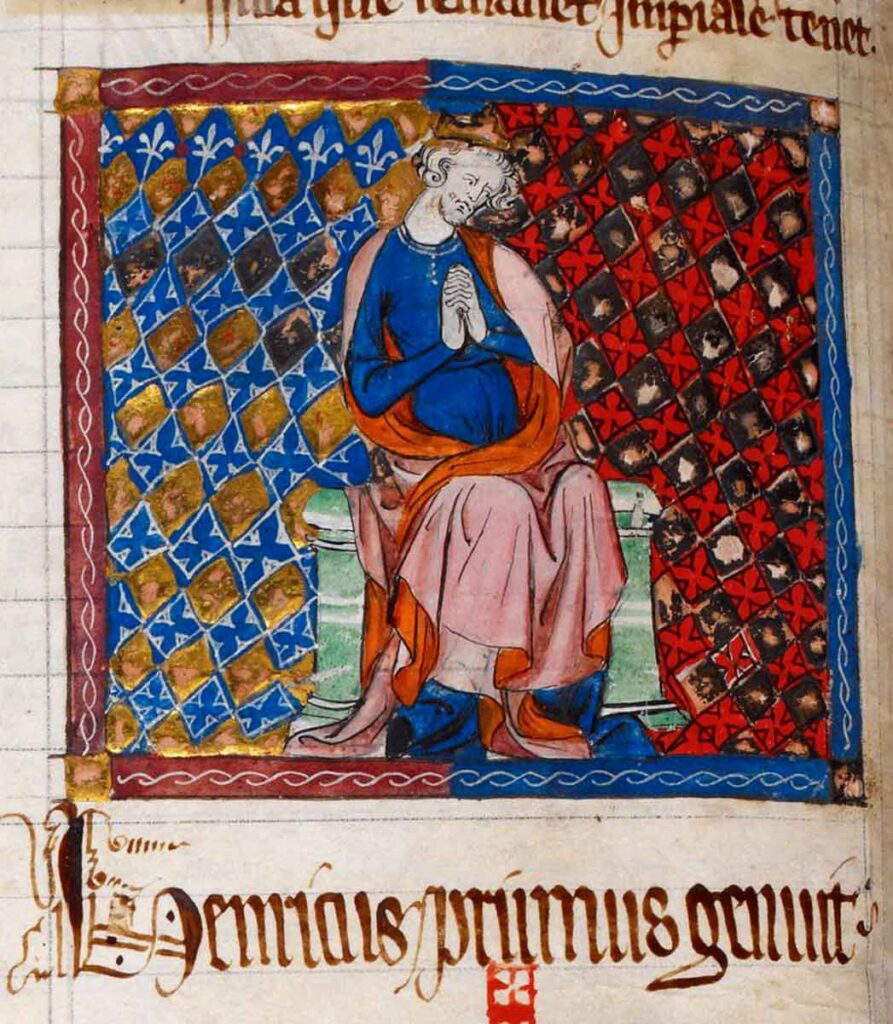 que remanet Imperiale tenet.
Henricus primus genuit